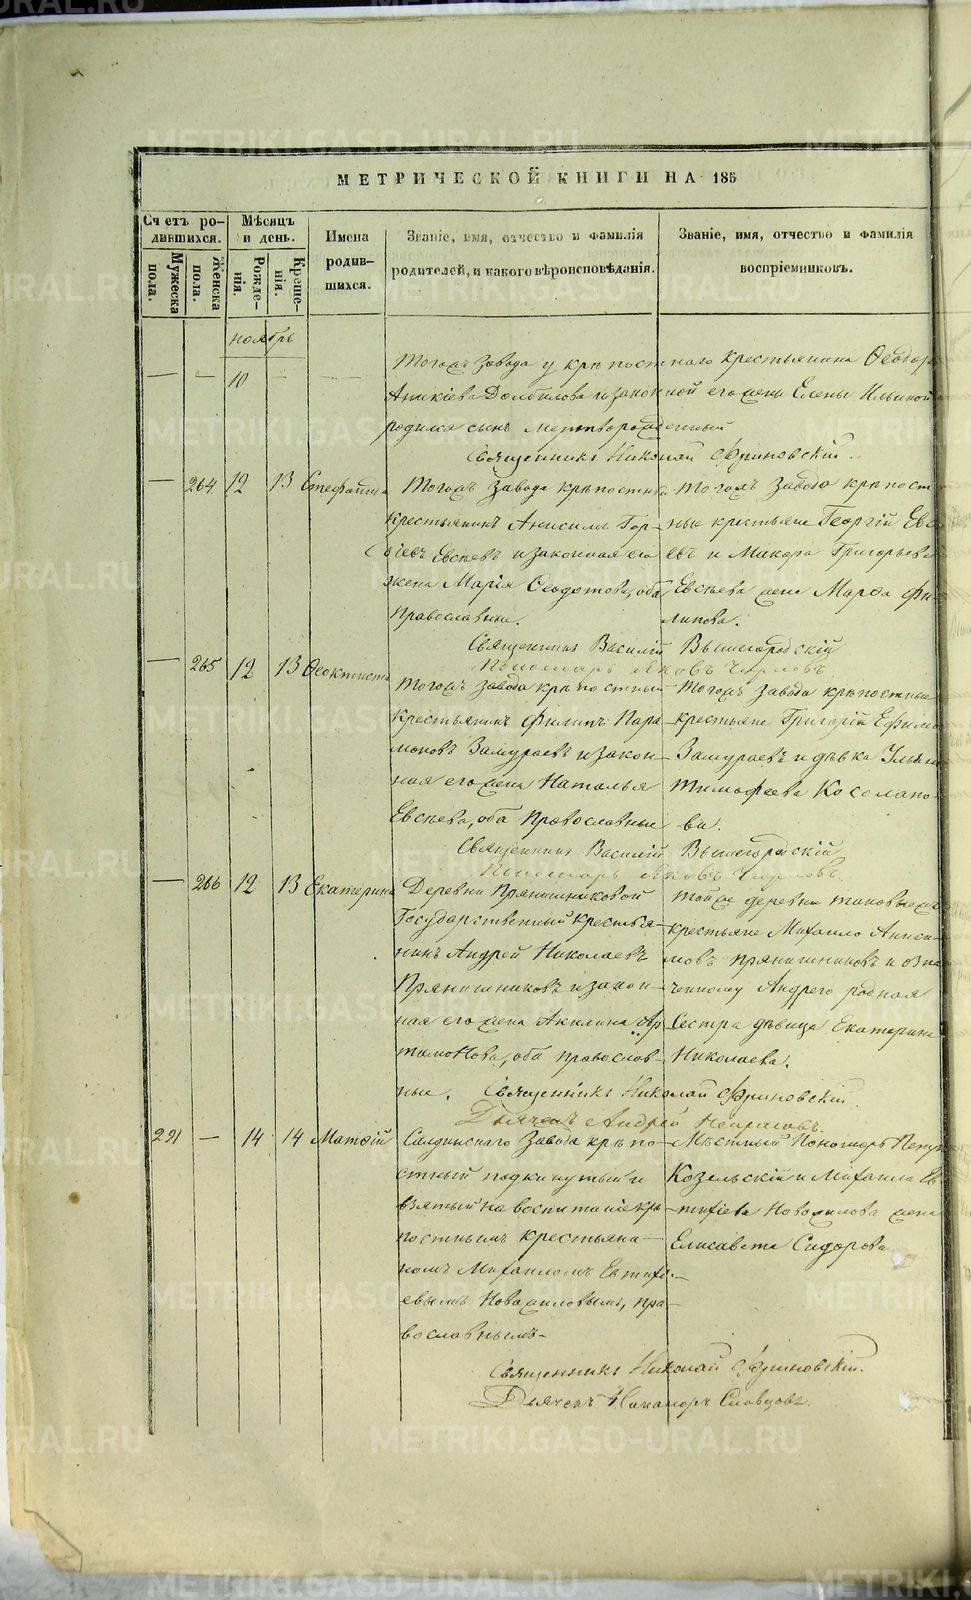 МЕТРИЧЕСКОЙ КНИГИ НА 185
Счетъ родившихся.
Мѣсяцъ и день.
Имена родившихся.
Званіе, имя, отчество и фамилія родителей, и какого вѣроисповѣданія.
Званіе, имя, отчество и фамилія воспріемниковъ.
Мужеска пола.
Женска пола.
Рожденія.
Крещенія.
ноябрь
— — 10 — — Тогожъ завода у крѣпостнаго крестьянина Ѳеодора
Аникіева Долбилова и законной его жены Елены Ильиной
родился сынъ мертворожденный
Священникъ Николай Фриновскій.
— 264 12 13 Стефанида
Тогожъ завода крѣпостный
крестьянинъ Анисимъ Гор-
діевъ Евсѣевъ и законная его
жена Марія Ѳеодотова, оба
православные.
Тогожъ завода крѣпост-
ные крестьяне Георгій Евсѣ-
евъ и Макара Григорьева
Евсѣева жена Марѳа Фи-
липова.
Священникъ Василій Вышегородскій
Пономарь Яковъ
— 265 12 13 Ѳеоктиста
Тогожъ завода крѣпостный
крестьянинъ Филипъ Пара-
моновъ Замураевъ и закон-
ная его жена Наталья
Евсѣева, оба православные
Тогожъ завода крѣпостные
крестьяне Григорій Ефимовъ
Замураевъ и дѣвка Ульяна
Тимофеева Косолапо-
ва.
Священникъ Василій Вышегородскій
Пономарь Яковъ
— 266 12 13 Екатерина
Деревни Прянишниковой
Государственный крестья-
нинъ Андрей Николаевъ
Прянишниковъ и закон-
ная его жена Акилина Ар-
тамонова, оба православ-
ные.
Той же деревни таковые же
крестьяне Михаило Аниси-
мовъ Прянишниковъ и озна-
ченному Андрею родная
сестра дѣвица Екатерина
Николаева.
Священникъ Николай Фриновскій
Дьячекъ Андрей
291 — 14 14 Матѳій
Салдинскаго завода крѣпо-
стный подкинутый и
взятый на воспитаніе крѣ-
постнымъ крестьяни-
номъ Михаиломъ Евтифі-
евымъ Новожиловымъ, пра-
вославнымъ
Мѣстный Пономарь Петръ
Козельскій и Михаила Ев-
тифіева Новожилова жена
Елисавета Сидорова
Священникъ Николай Фриновскій.
Дьячекъ Никаноръ Словцовъ.
METRIKI.GASO-URAL.RU